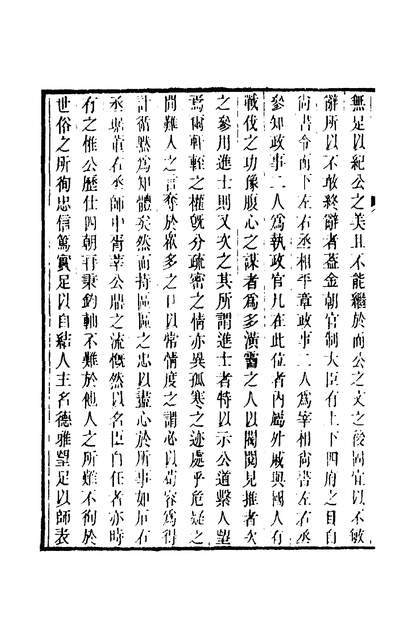 無足以紀公之美且不能繼於而公之文之後固宜以不敏
辭所以不敢終辭者蓋金朝官制大臣有上下四府之目自
尚書令而下左右丞相平章政事二人爲宰相尚書左右丞
參知政事二人爲執政官凡在此位者內屬外戚與國人有
戰伐之功豫腹心之謀者爲多潢霫之人以閥閱見推者次
之參用進士則又次之其所謂進士者特以示公道繫人望
焉爾軒輊之權旣分疏密之情亦異孤寒之迹處乎危疑之
間難人之言奪於衆多之口以常情度之謂必以苟容爲得
計循默爲知體矣然而持區區之忠以盡心於所事如石右
丞琚董右丞師中胥莘公鼎之流慨然以名臣自任者亦時
有之惟公歷仕四朝再秉鈞軸不難於他人之所難不徇於
世俗之所徇忠信篤實足以自結人主名德雅望足以師表